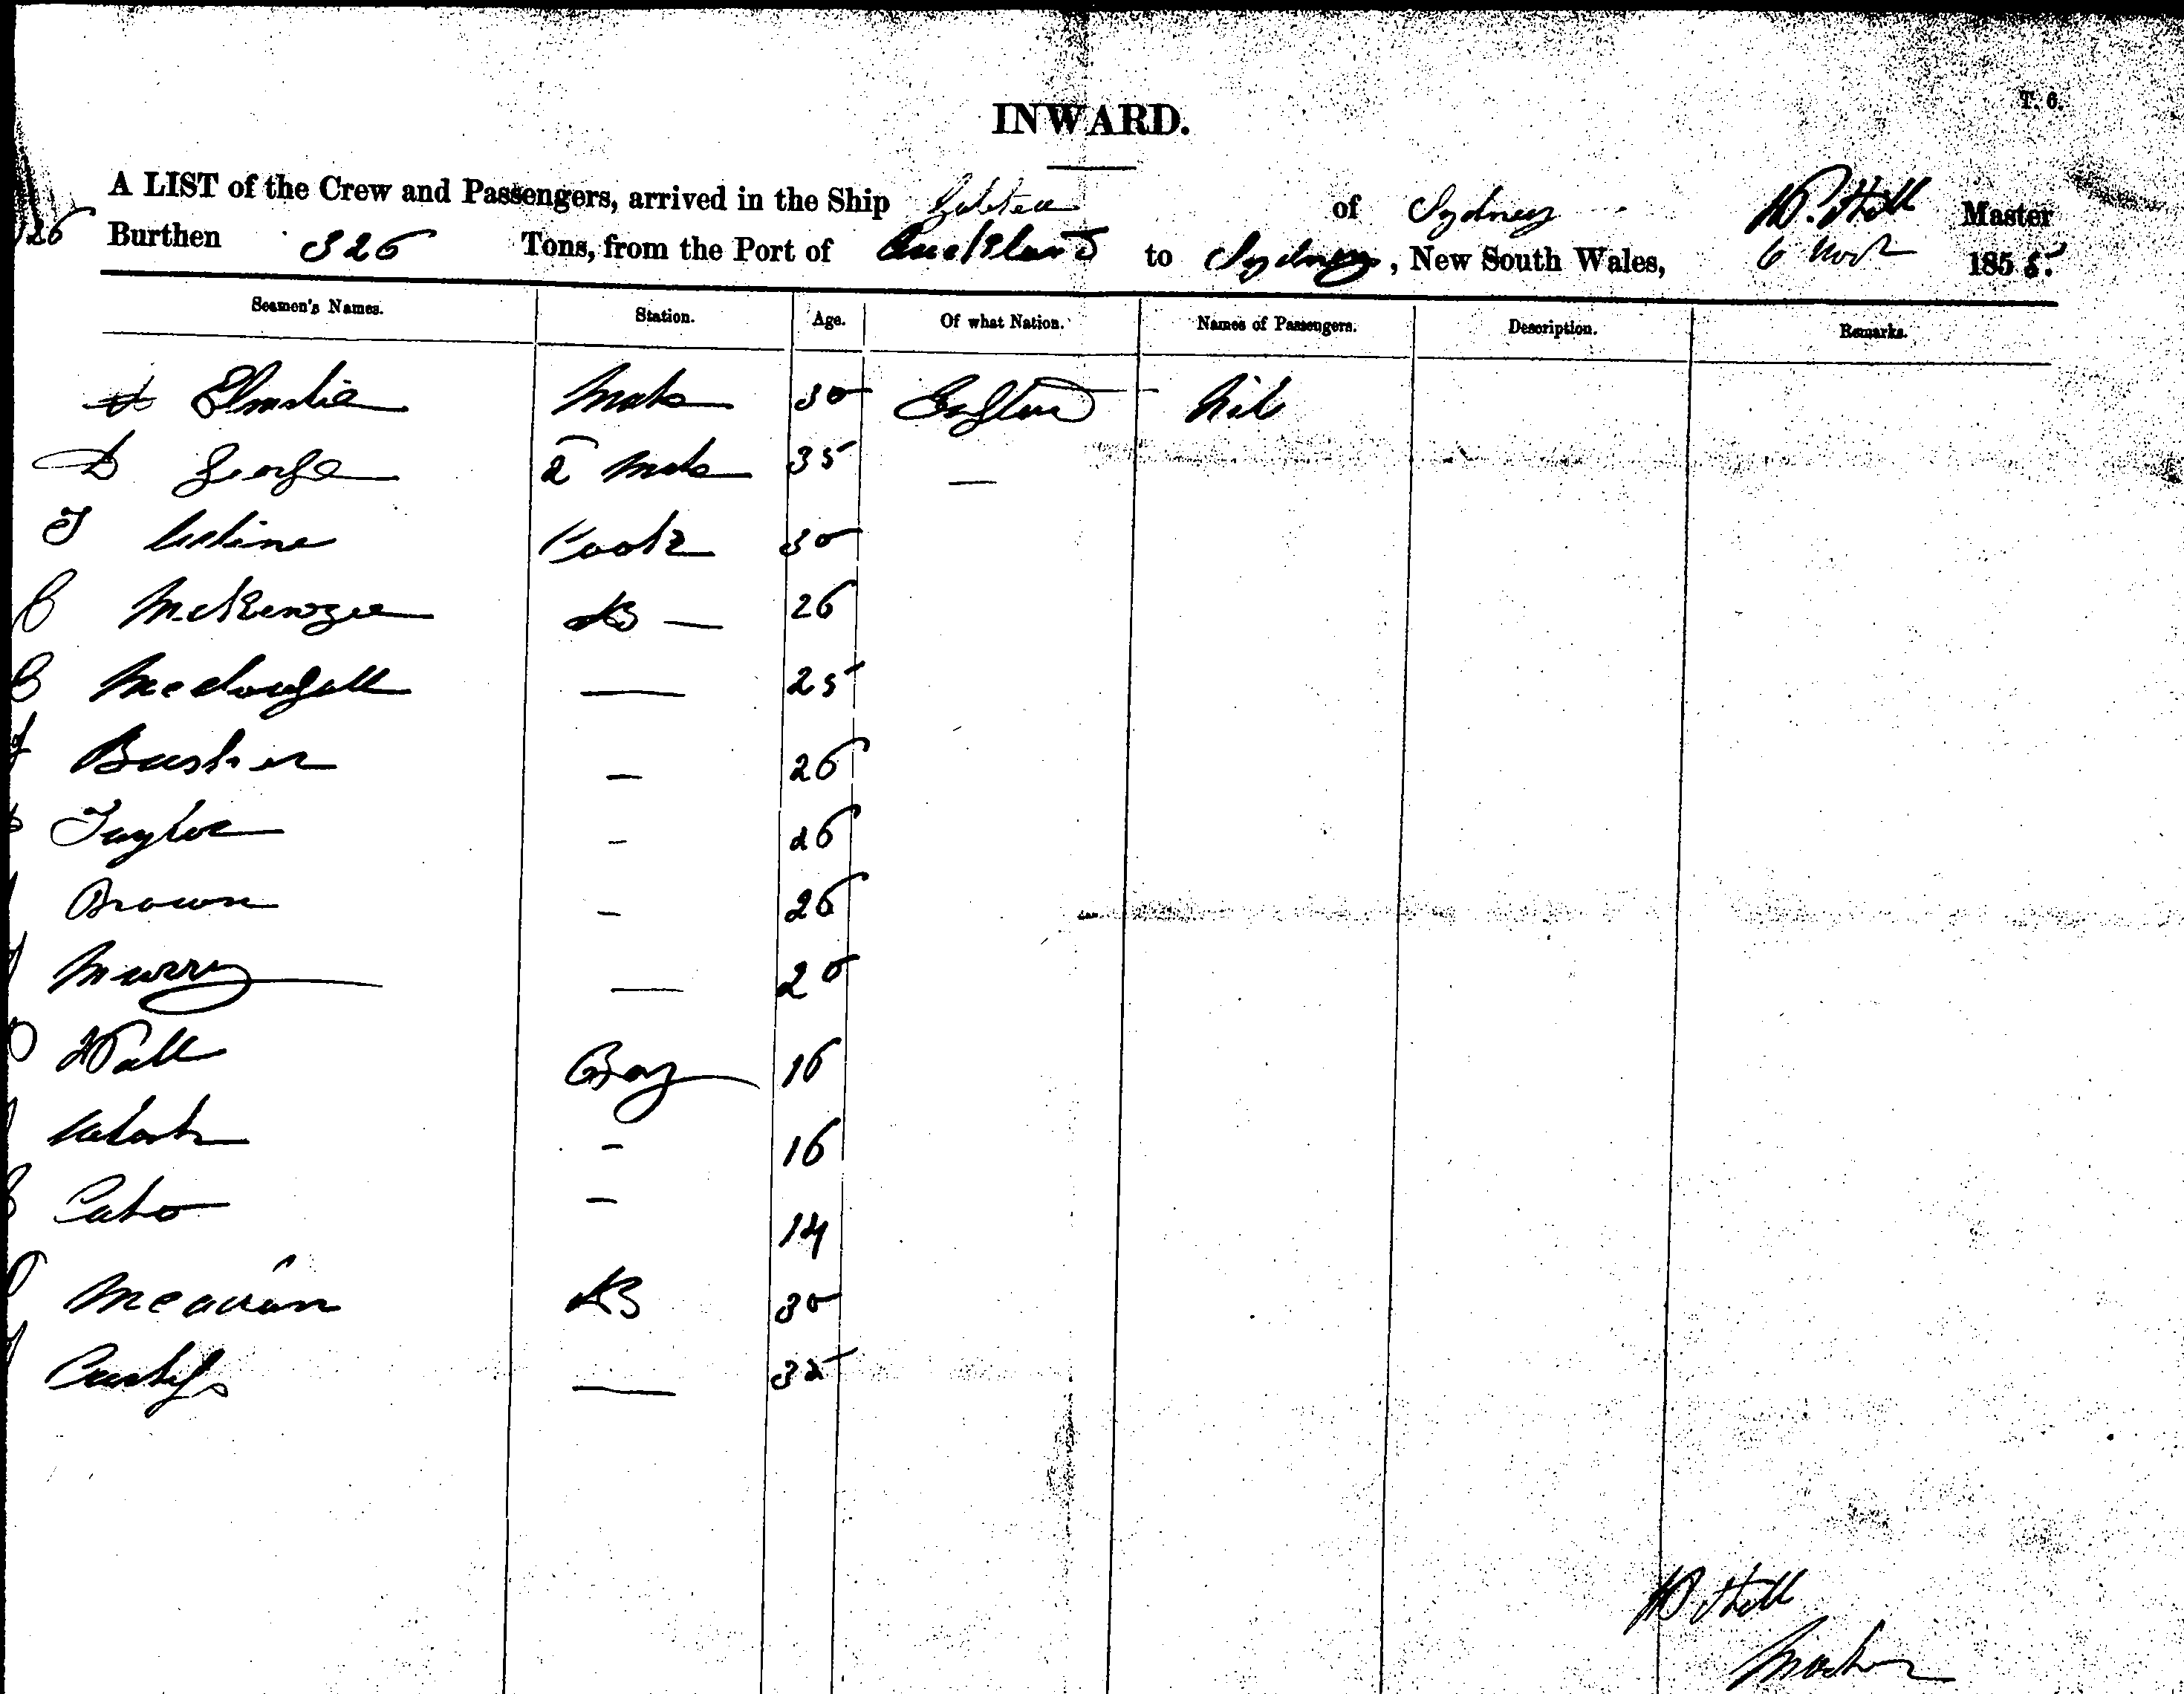 INWARD.
T. 6.
A LIST of the Crew and Passengers, arrived in the Ship of Sydney W. Hill Master
Burthen 326 Tons, from the Port of Auckland to Sydney, New South Wales, 6 Novr 1855.
Seamen's Names. Station. Age. Of what Nation. Names of Passengers. Description. Remarks.
Elmslie Mate 30 England Nil
D George 2 Mate 35 —
J Cook 30
McKenzie AB — 26
McDougall — 25
26
Taylor - 26
Brown - 26
Murry — 20
Wall Boy 16
- 16
Cato - 14
AB 30
— 35
W Hill
Master